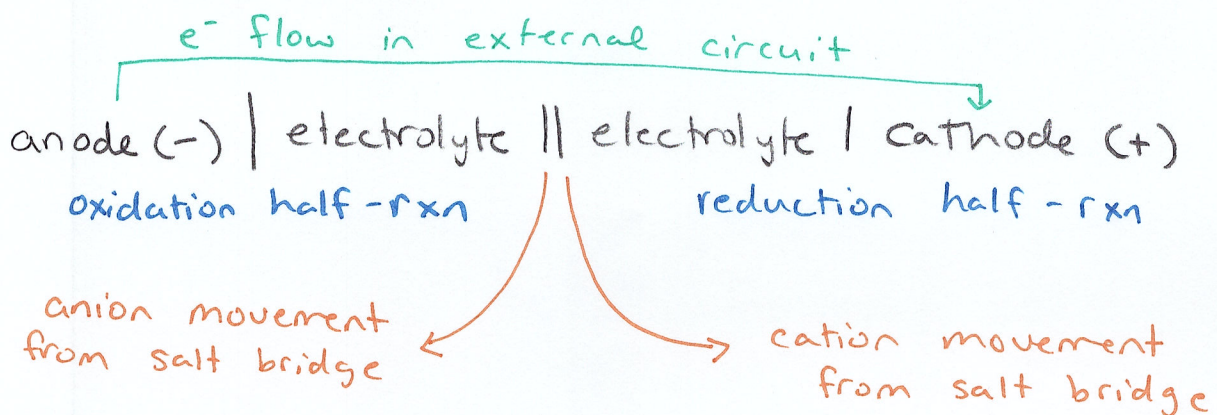 e⁻ flow in external circuit
anode (-) | electrolyte || electrolyte | cathode (+)
oxidation half-rxn reduction half-rxn
anion movement
from salt bridge
cation movement
from salt bridge